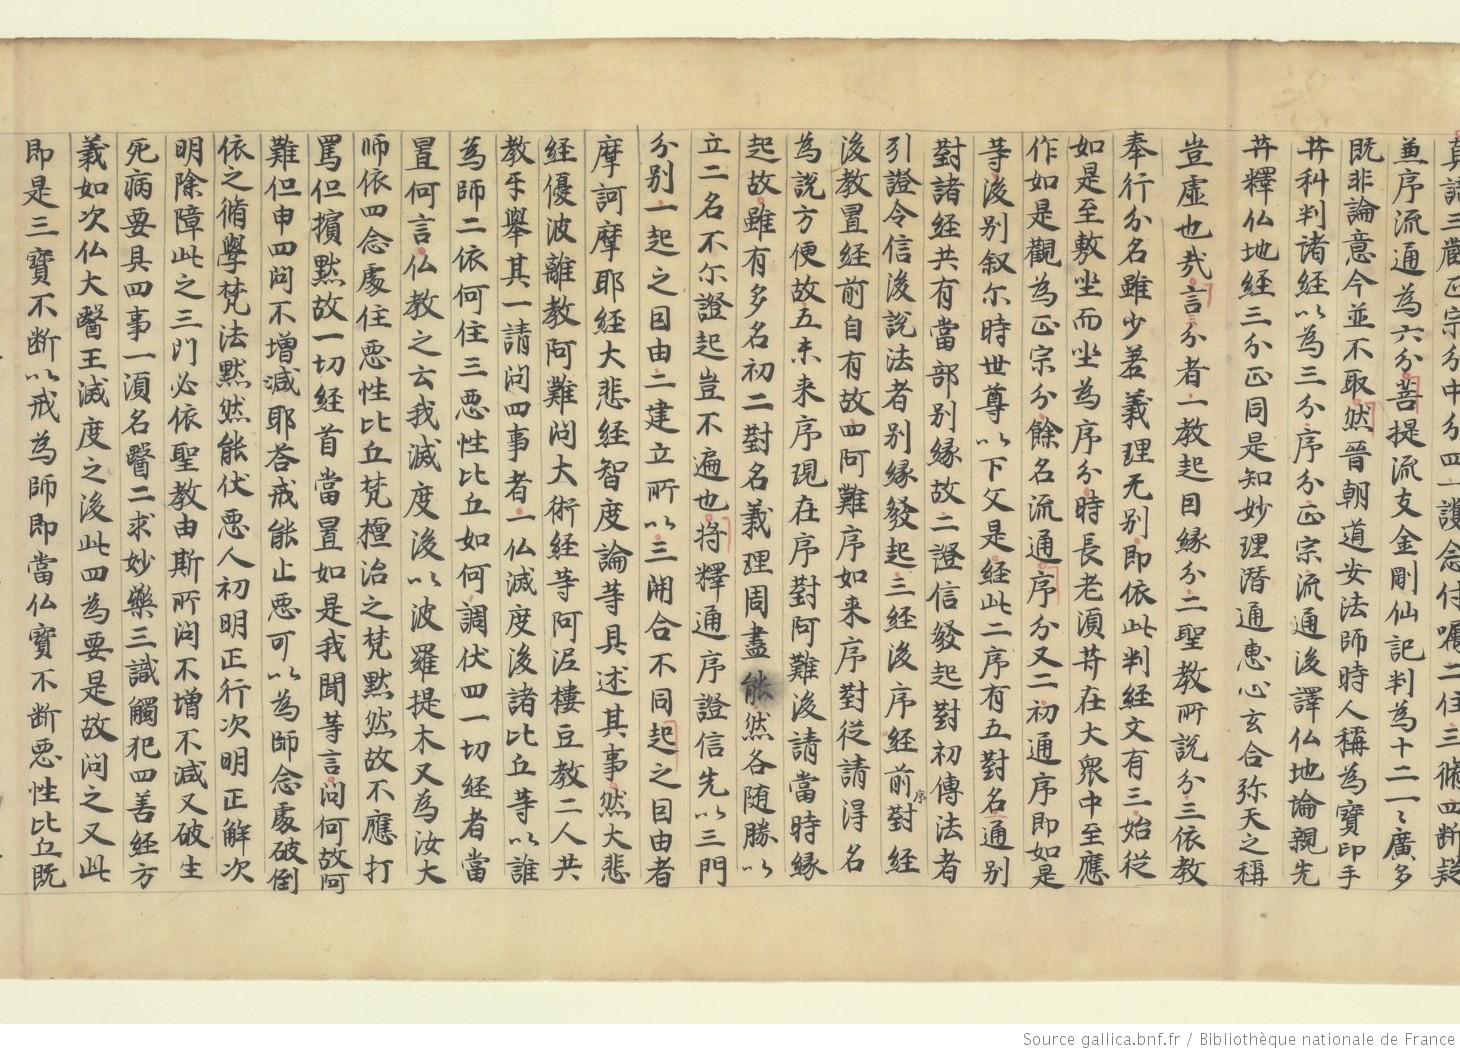 三藏正宗分中分四一護念付囑二住三脩四斷疑
並序流通為六分菩提流支金剛仙記判為十二一〻廣多
既非論意今並不取然晉朝道安法師時人稱為寶印手
菩薩科判諸經以為三分序分正宗流通後譯仏地論親光
菩薩釋仏地經三分正同是知妙理潛通惠心玄合弥天之稱
豈虛也哉言三分者一教起因緣分二聖教所說分三依教
奉行分名雖少差義理无別即依此判經文有三始從
如是至敷坐而坐為序分時長老須菩提在大衆中至應
作如是觀為正宗分餘名流通序分又二初通序即如是
等後別叙尒時世尊以下文是經此二序有五對名一通別
對諸經共有當部別緣故二證信發起對初傳法者
引證令信後說法者別緣發起三經後序經前序對經
後教置經前自有故四阿難序如来序對從請得名
為說方便故五未来序現在序對阿難後請當時緣
起故雖有多名初二對名義理周盡能然各随勝以
立二名不尒證起豈不遍也將釋通序證信先以三門
分別一起之因由二建立所以三開合不同起之因由者
摩訶摩耶經大悲經智度論等具述其事然大悲
經優波離教阿難問大術經等阿泥樓豆教二人共
教乎舉其一請問四事者一仏滅度後諸比丘等以誰
為師二依何住三惡性比丘如何調伏四一切經者當
置何言仏教之云我滅度後以波羅提木又為汝大
師依四念處住惡性比丘梵檀治之梵默然故不應打
罵但擯默故一切經首當置如是我聞等言問何故阿
難但申四問不增減耶荅戒能止惡可以為師念處破倒
依之脩學梵法默然能伏惡人初明正行次明正解次
明除障此之三門必依聖教由斯所問不增不減又破生
死病要具四事一須名醫二求妙藥三識觸犯四善經方
義如次仏大醫王滅度之後此四為要是故問之又此
即是三寶不斷以戒為師即當仏寶不斷惡性比丘既
Source gallica.bnf.fr / Bibliothèque nationale de France